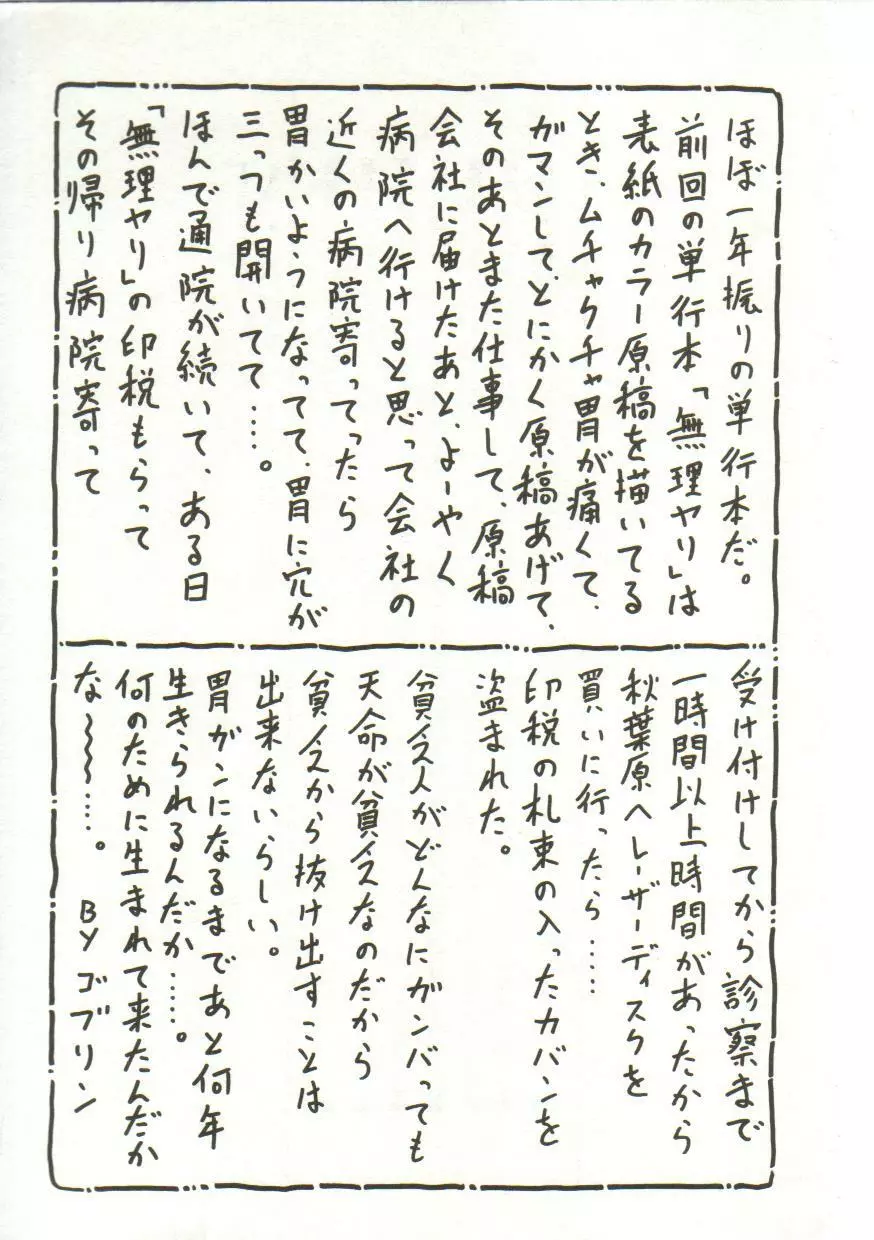 ほぼ一年振りの単行本だ。
前回の単行本「無理ヤリ」は
表紙のカラー原稿を描いてる
とき、ムチャクチャ胃が痛くて、
ガマンして、とにかく原稿あげて、
そのあとまた仕事して、原稿
会社に届けたあと、よーやく
病院へ行けると思って会社の
近くの病院寄ってったら
胃かいようになってて、胃に穴が
三っつも開いてて……。
ほんで通院が続いて、ある日
「無理ヤリ」の印税もらって
その帰り病院寄って
受け付けしてから診察まで
一時間以上時間があったから
秋葉原へレーザーディスクを
買いに行ったら……
印税の札束の入ったカバンを
盗まれた。
貧乏人がどんなにガンバっても
天命が貧乏なのだから
貧乏から抜け出すことは
出来ないらしい。
胃ガンになるまであと何年
生きられるんだか……。
何のために生まれて来たんだか
な〜〜〜…。 BYゴブリン